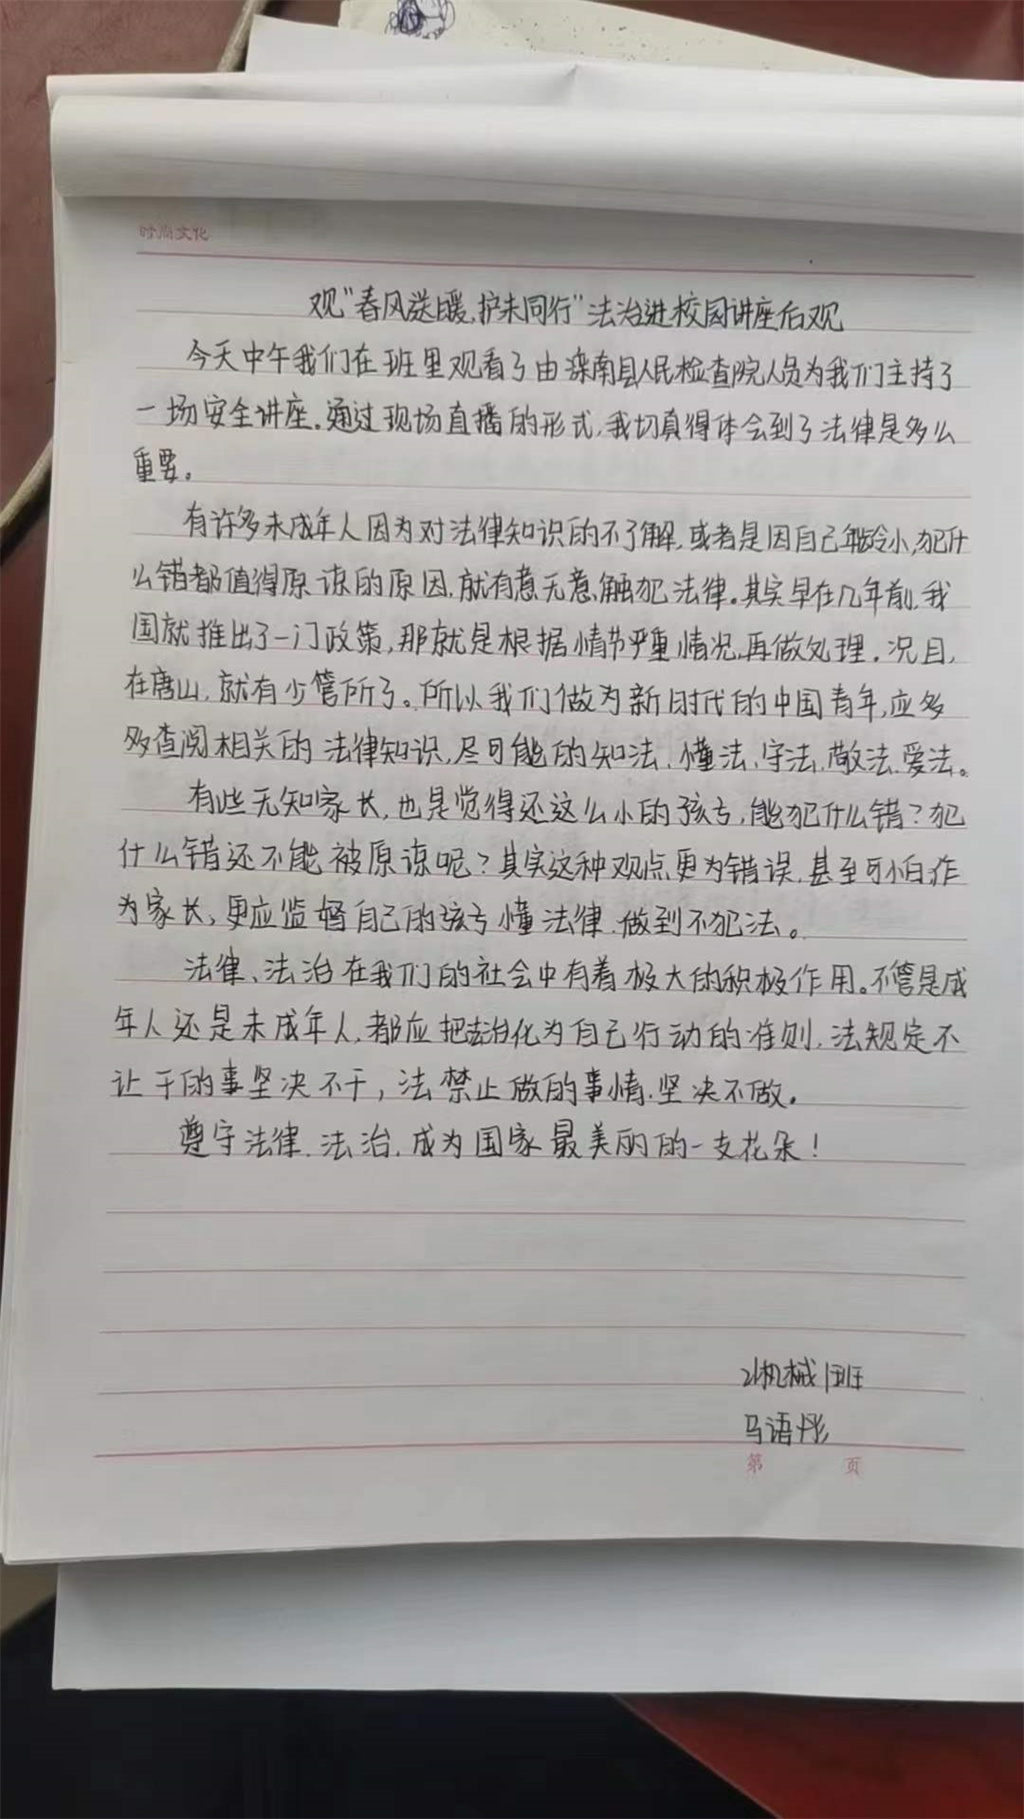 时尚文化
观“春风送暖,护未同行”法治进校园讲座后观
今天中午我们在班里观看了由滦南县人民检查院人员为我们主持了
一场安全讲座。通过现场直播的形式,我切真得体会到了法律是多么
重要。
有许多未成年人因为对法律知识的不了解,或者是因自己年龄小,犯什
么错都值得原谅的原因,就有意无意触犯法律。其实早在几年前,我
国就推出了一门政策,那就是根据情节严重情况,再做处理。况且,
在唐山,就有少管所了。所以我们做为新时代的中国青年,应多
多查阅相关的法律知识,尽可能的知法、懂法、守法、敬法、爱法。
有些无知家长,也是觉得还这么小的孩子,能犯什么错?犯
什么错还不能被原谅呢?其实这种观点更为错误,甚至可怕,作
为家长,更应监督自己的孩子懂法律,做到不犯法。
法律、法治在我们的社会中有着极大的积极作用。不管是成
年人还是未成年人,都应把法治化为自己行动的准则,法规定不
让干的事坚决不干,法禁止做的事情,坚决不做。
遵守法律、法治,成为国家最美丽的一支花朵!
21机械1班
马语彤
第 页